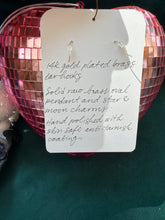 14k gold plated brass
ear hooks
Solid raw brass oval
pendant and star &
moon charms
Hand polished with
skin safe anti tarnish
coating.